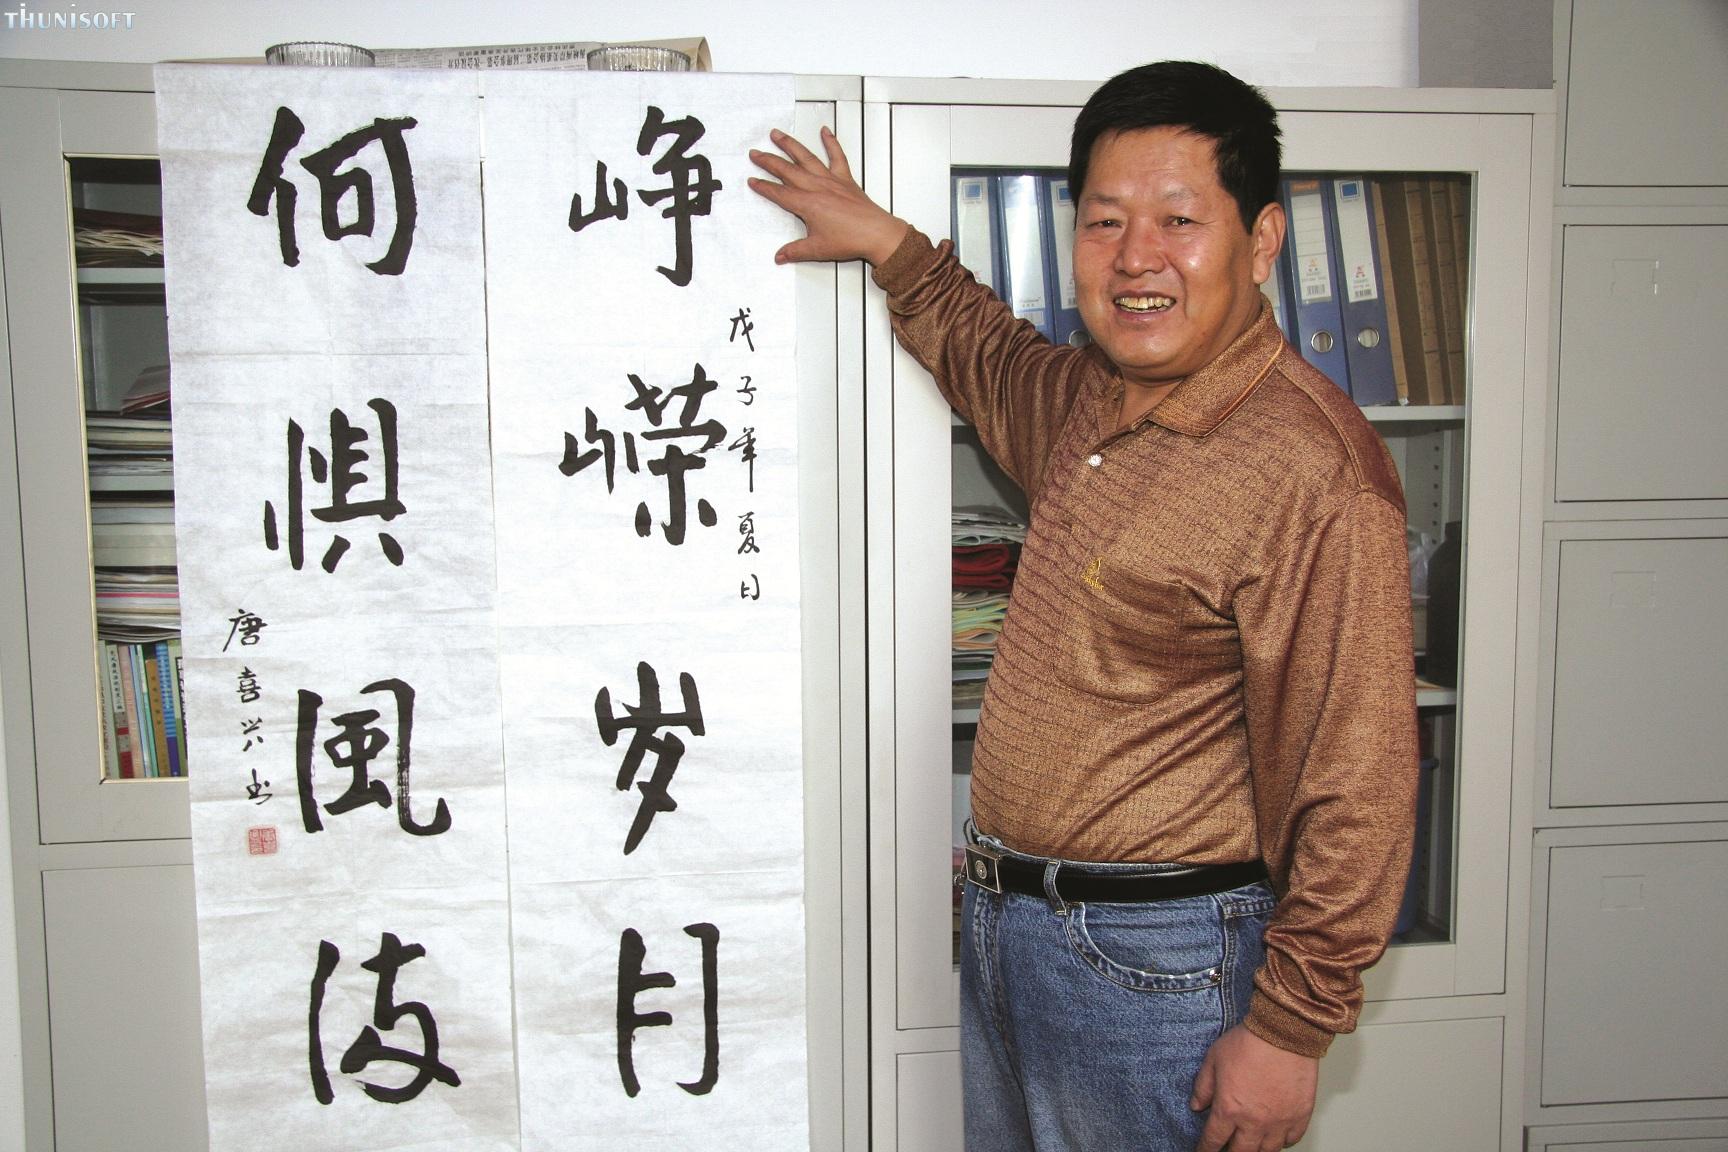 THUNISOFT
峥嵘岁月
戊子年夏日
何惧風波
唐喜兴书